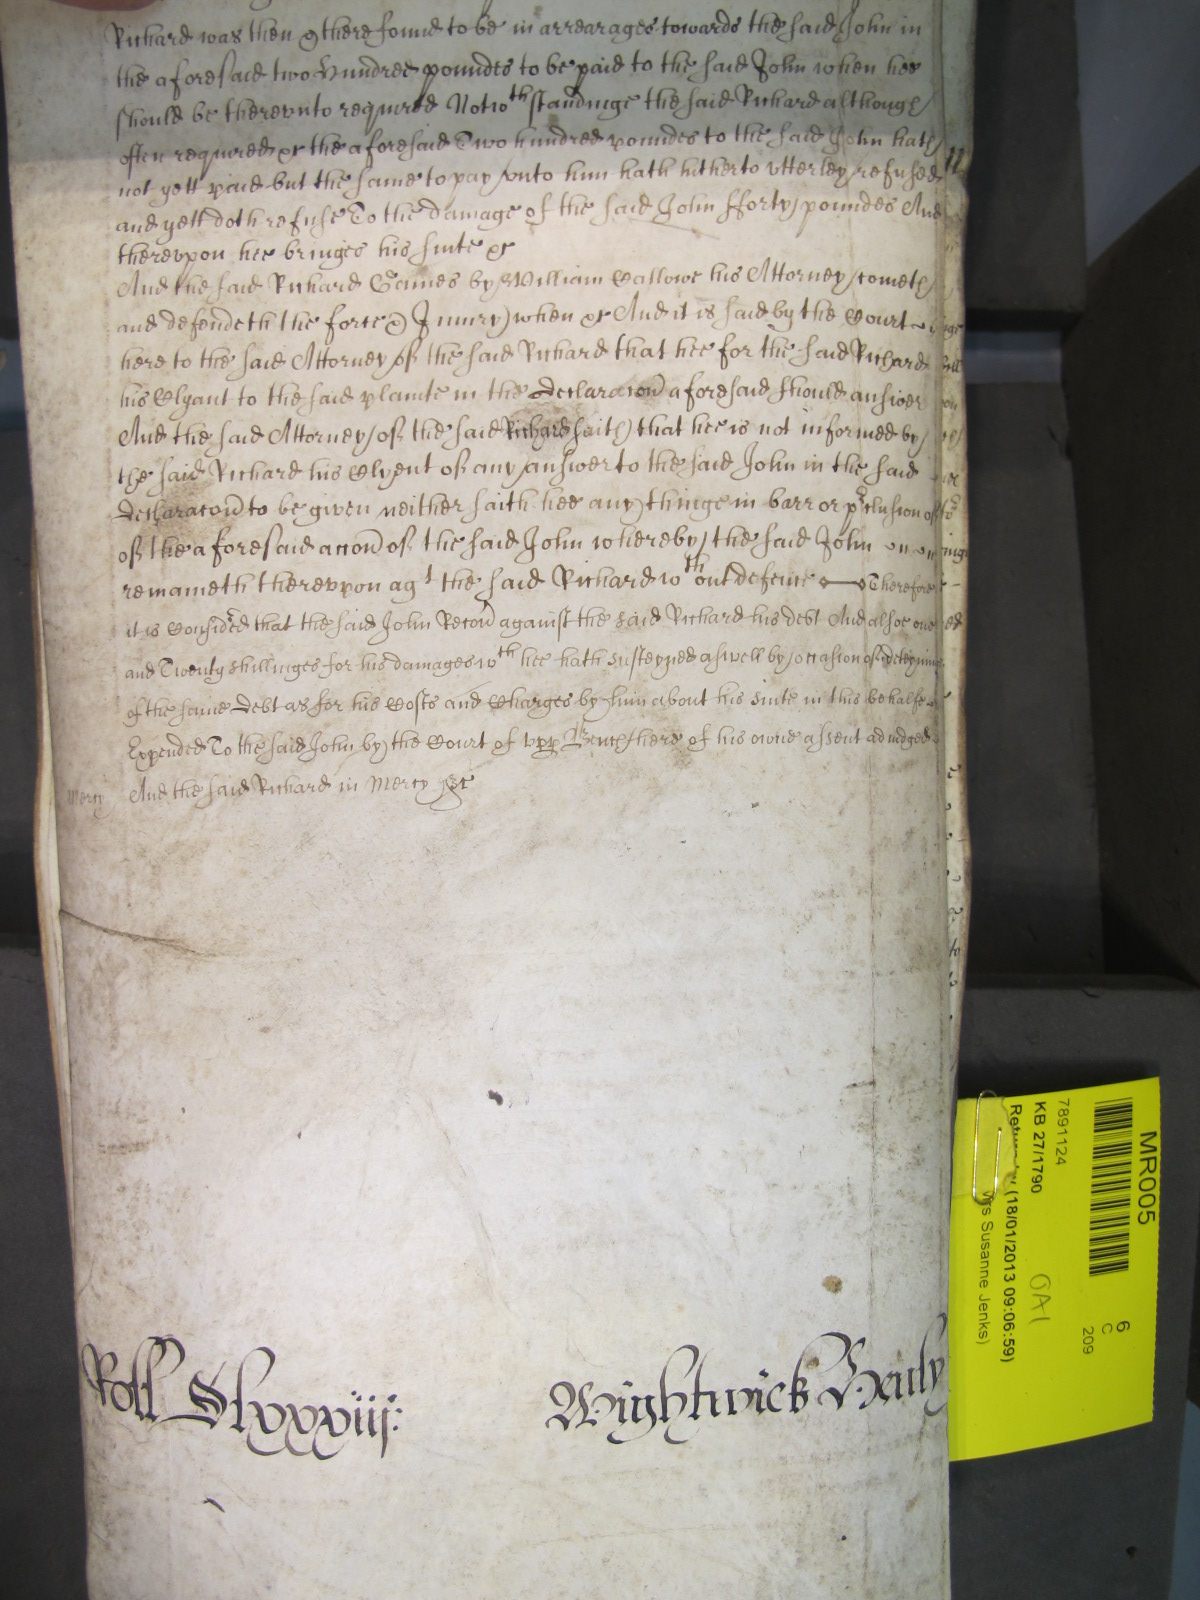 Richard was then & there found to be in arrearages towards the said John in
the aforesaid two hundred poundes to be paid to the said John when hee
should be therevnto required Notwth standinge the said Richard although
often required &c the aforesaid Two hundred poundes to the said John hath
not yett paid but the same to pay vnto him hath hitherto vtterley refused
and yett doth refuse To the damage of the said John fforty poundes And
therevpon hee bringes his suite &c
And the said Richard by William Gallowe his Attorney cometh
and defendeth the force & Iniury when &c And it is said by the Court
here to the said Attorney of the said Richard that hee for the said Richard
his Clyant to the said plainte in the declaracon aforesaid should answer
And the said Attorney of the said Richard saith that hee is not informed by
the said Richard his Clyent of any answer to the said John in the said
declaracon to be given neither saith hee any thinge in barr or pclusion of
of the aforesaid accon of the said John whereby the said John
remaineth therevppon agt the said Richard wth out defence Therefore
it is Considred that the said John Recou against the said Richard his debt And alsoe one
and Twenty shillinges for his damages wth hee hath susteyned aswell by occasion of deteyninge
of the same debt as for his Costs and Charges by him about his suite in this behalfe
Expended To the said John by the Court of vpp Bench here of his owne assent adiudged
And the said Richard in Mercy &c
Mercy
Roll Clxxxiiij:
Wightwick
MR005
6
C
209
7891124
KB 27/1790
OA1
(18/01/2013 09:06:59)
Susanne Jenks)